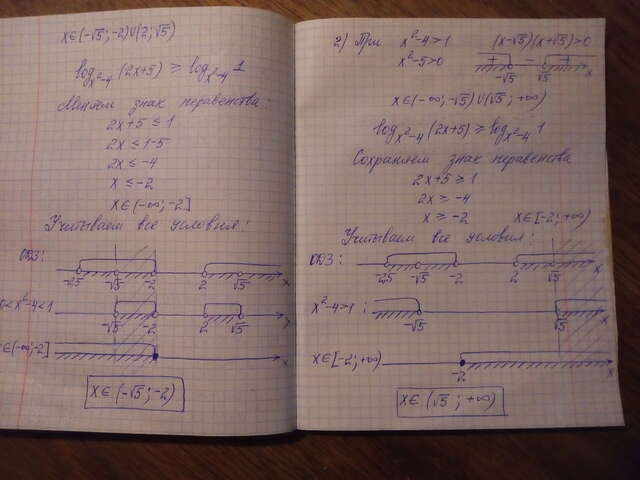 x∈(-√5;-2)∪(2;√5)
log_{x²-4}(2x+5) ≥ log_{x²-4}1
Меняем знак неравенства:
2x+5 ≤ 1
2x ≤ 1-5
2x ≤ -4
x ≤ -2
x∈(-∞;-2]
Учитываем все условия:
ОДЗ:
-2,5 -√5 -2 2 √5 x
0<x²-4<1
-√5 -2 2 √5 x
x∈(-∞;-2]
x
x∈(-√5;-2)
2) При x²-4>1 (x-√5)(x+√5)>0
x²-5>0
+ - +
-√5 √5 x
x∈(-∞;-√5)∪(√5;+∞)
log_{x²-4}(2x+5) ≥ log_{x²-4}1
Сохраняем знак неравенства
2x+5 ≥ 1
2x ≥ -4
x ≥ -2 x∈[-2;+∞)
Учитываем все условия:
ОДЗ:
-2,5 -√5 -2 2 √5 x
x²-4>1:
-√5 √5 x
x∈[-2;+∞)
-2 x
x∈(√5;+∞)